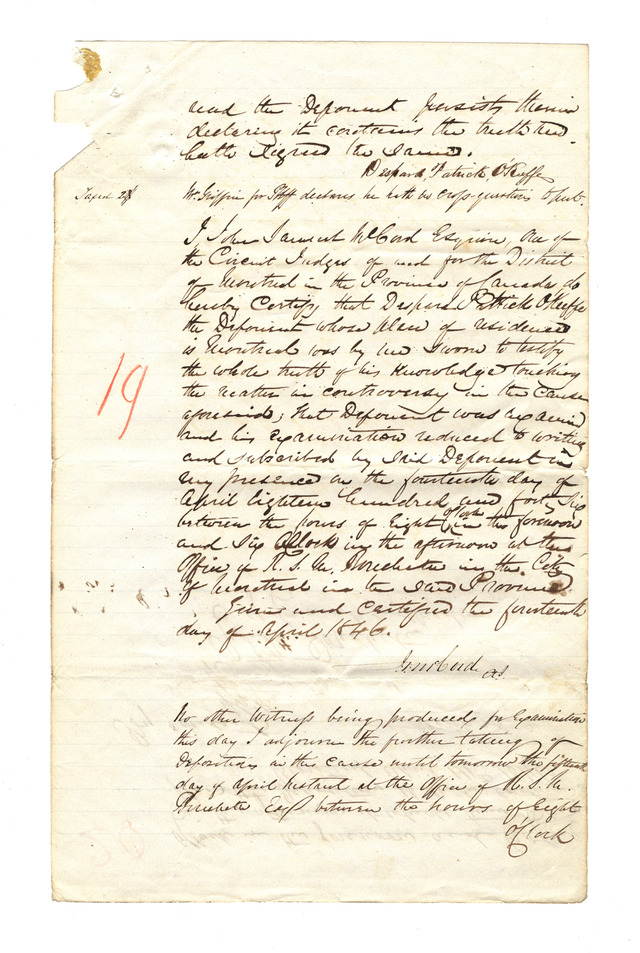 read the Deponent persists therein
declaring it contains the truth and
hath signed the same.
Despard Patrick O'Keeffe
Taxed
Mr. Griffin for Plff declares he hath no cross-questions to put.
I John Samuel McCord Esquire, One of
the Circuit Judges of and for the District
of Montreal in the Province of Canada, do
hereby Certify that Despard Patrick O'Keeffe
the Deponent whose place of residence
is Montreal was by me sworn to testify
the whole truth of his knowledge touching
the matter in controversy in the cause
aforesaid; that Deponent was examined
19
and his examination reduced to writing
and subscribed by said Deponent in
my presence on the fourteenth day of
April Eighteen hundred and forty Six
between the hours of Eight o'clock in the forenoon
and Six O'Clock in the afternoon at the
Office of N. S. M. in the City
of Montreal in the said Province
Given and certified the fourteenth
day of April 1846.
J. McCord
No other Witness being produced for Examination
this day I adjourn the further taking of
Depositions in this cause until tomorrow the fifteenth
day of April Instant at the Office of N. S. M.
Esq between the hours of Eight
O'Clock